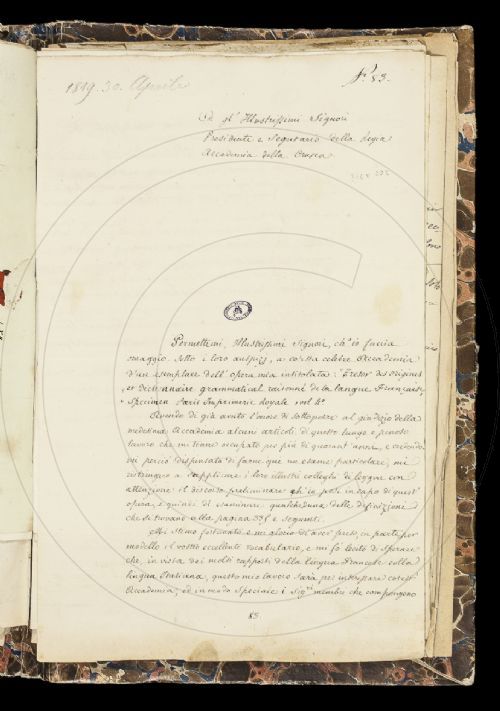 1819. 30. Aprile
N.º 83.
Ed Ill Illustrissimi Signori
Presidente e Segretario della Regia
Accademia della Crusca
Permettimi, Illustrissimi Signori, ch'io faccia
omaggio sotto i loro auspizj, a cotesta celebre Accademia
d'un esemplare dell'opera mia intitolata: Trésor des origines
et Dictionnaire grammatical raisonné de la langue Française,
Specimen Paris Imprimerie Royale vol 4.º
Avendo di già avuto l'onore di sottoporre al giudizio della
medesima Accademia alcuni articoli di questo lungo e penoso
lavoro che mi tenne occupato per più di quarant'anni, e credendo
mi perciò dispensato di farne un esame particolare, mi
restringo a supplicare i loro illustri colleghi di leggere con
attenzione il discorso preliminare ch'io posi in capo di quest'
opera, e quindi di esaminare qualcheduna delle definizioni
che si trovano alla pagina 335 e seguenti.
Mi stimo fortunato e mi glorio di aver preso in parte per
modello il vostro eccellente vocabolario, e mi fo lecito di sperare
che, in vista dei molti rapporti della lingua Francese colla
lingua Italiana, questo mio lavoro sarà per interessare cotest'
Accademia, ed in modo speciale i Sig.ri membri che compongono
83.